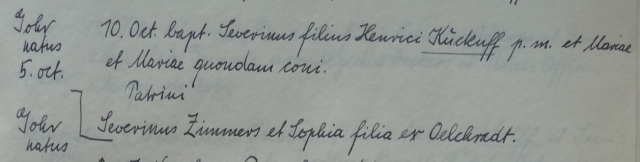 Gohr 10. Oct. bapt. Severinus filius Henrici Kückuff p. m. et Mariae
natus et Mariae quondam coni.
5. oct.
Patrini
Gohr Severinus Zimmers et Sophia filia ex Oelchradt.
natus